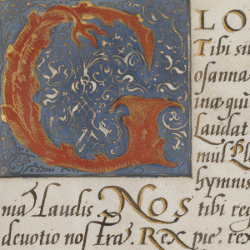 GLO
Tibi su
osanna
inæ qu
Laudat
mul
hymni
nia Laudis. Nos tibi rec
deuotio nostra. Rex pie, re